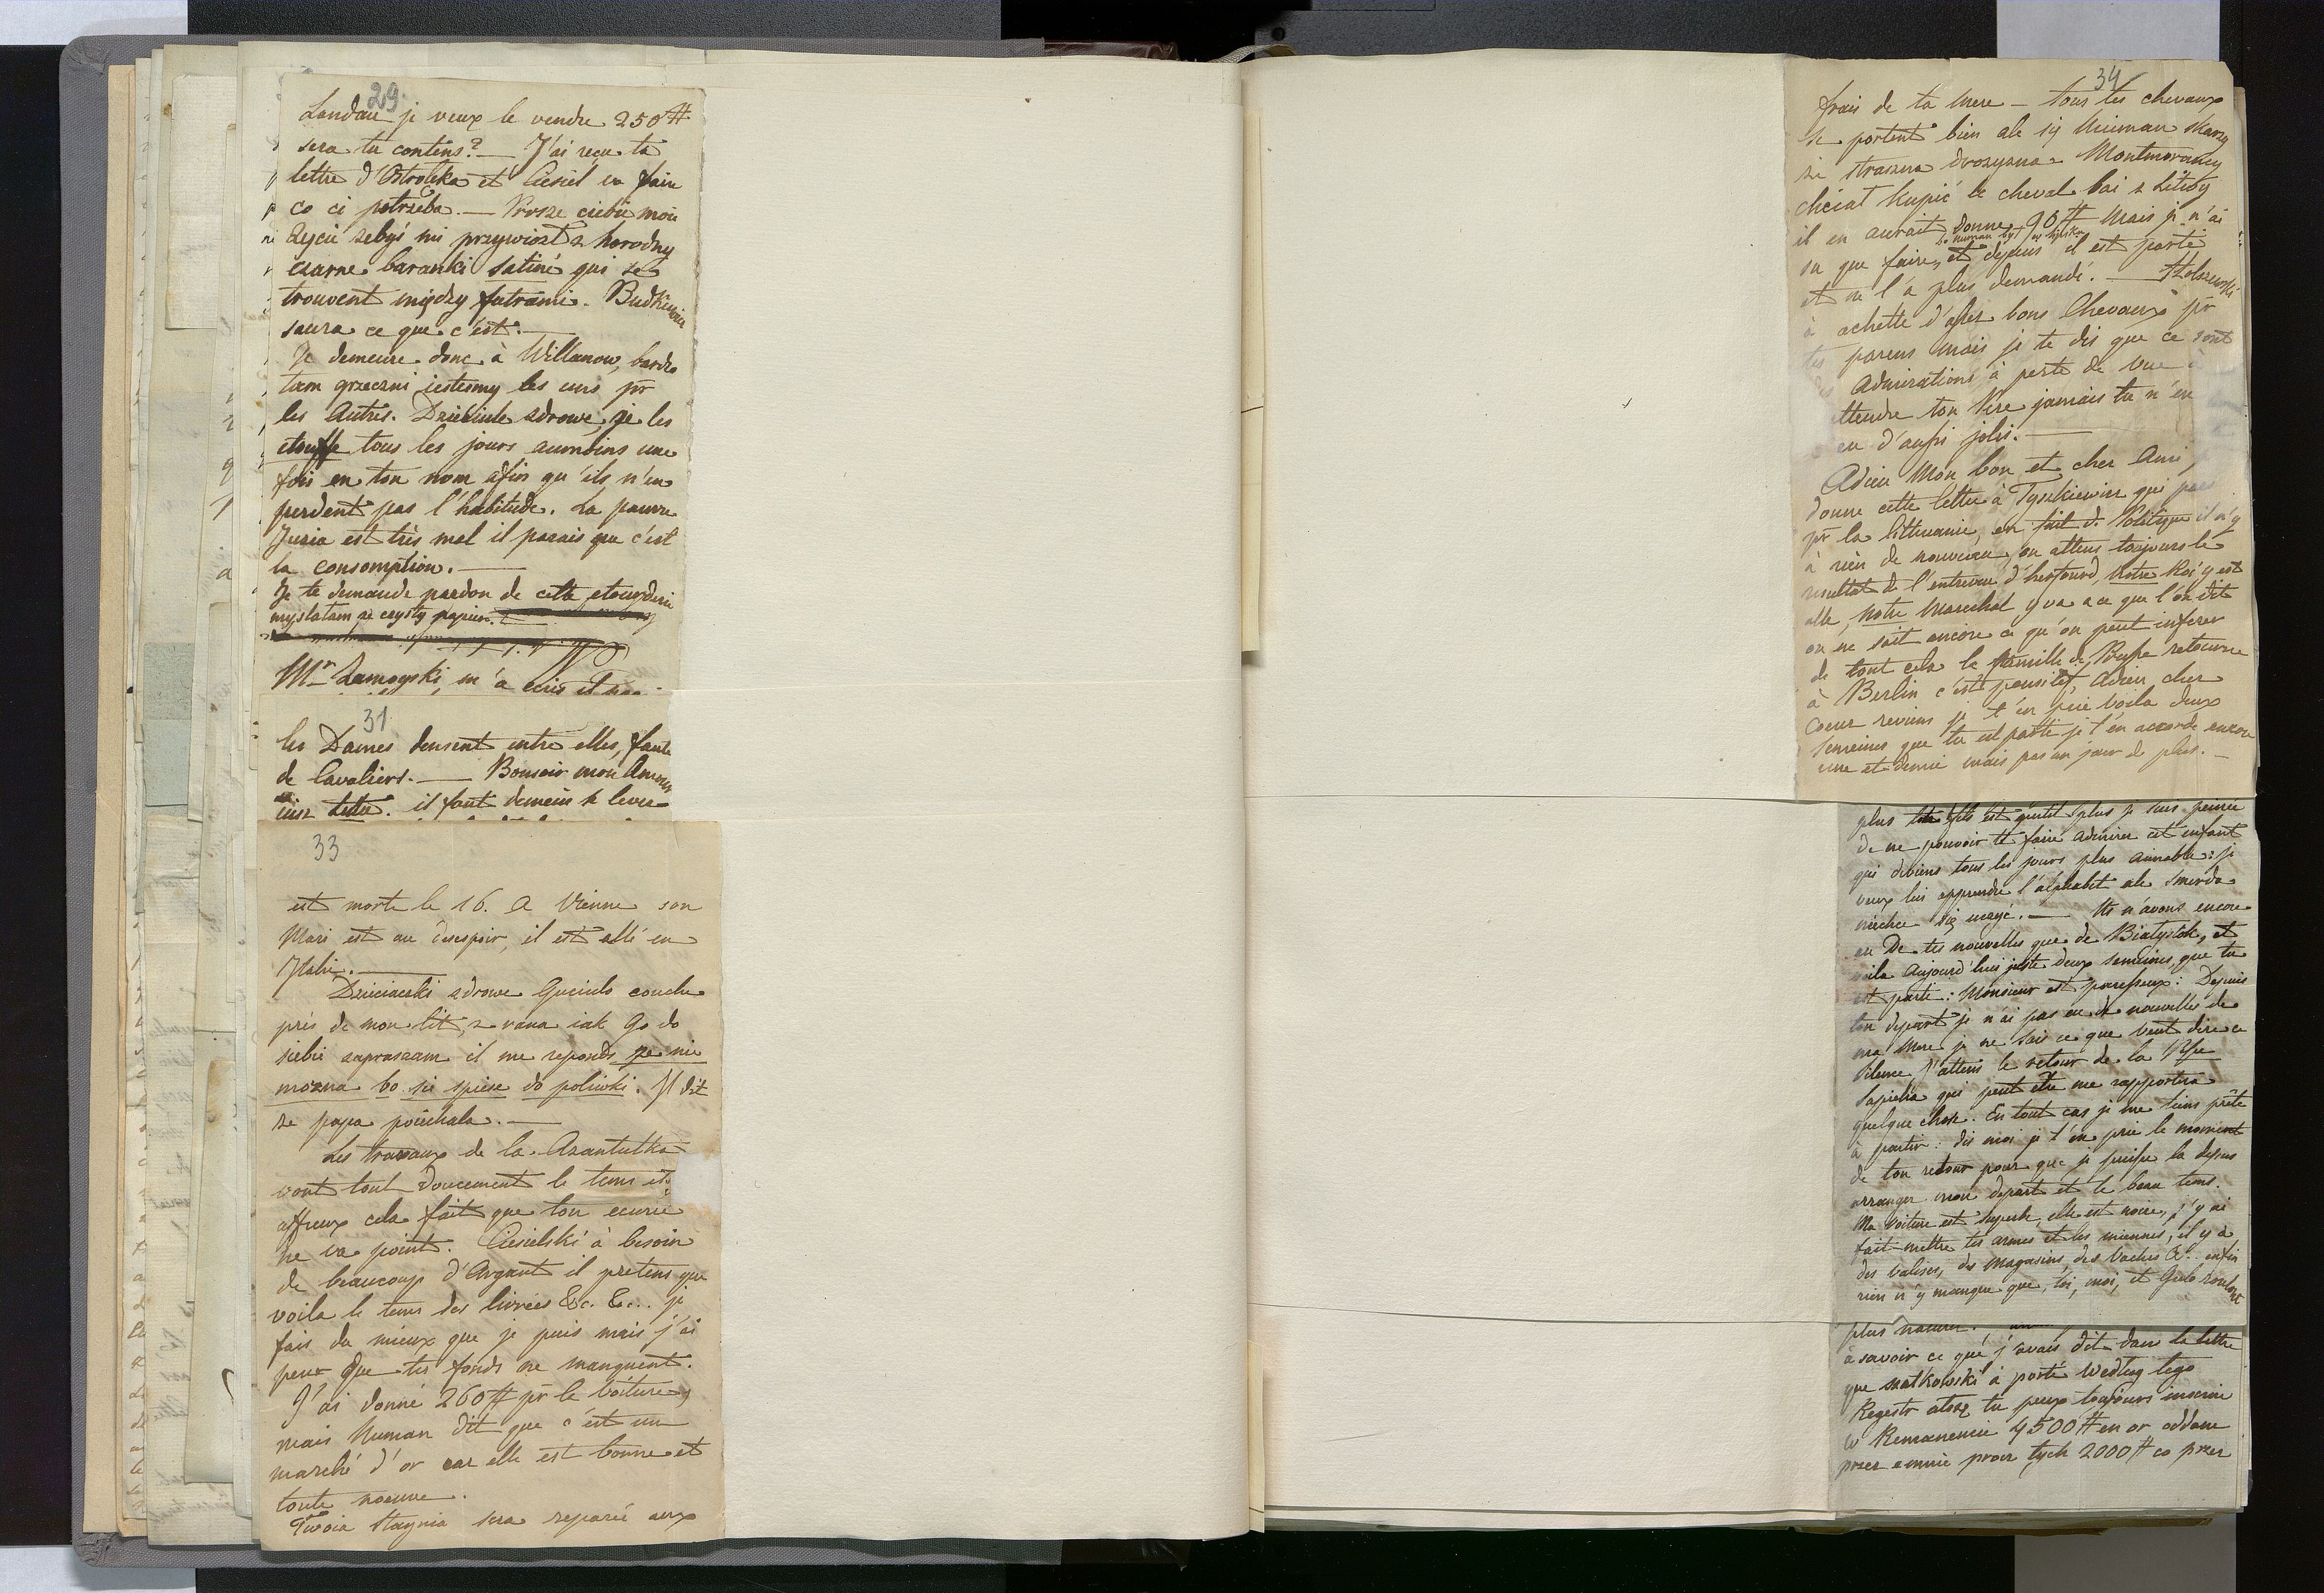 29.
Landau je veux le vendre 250 #
sera tu contens? — J'ai reçu ta
lettre d'Ostroleka et Ciesiel va faire
co ci potrzeba. — Prosze ciebie moie
życie zebyś mi przywiozł z horodny
czarne baranki satiné qui se
trouvent między futrami. Budkiewicz
saura ce que c'est. —
Je demeure donc à Willanow, bardzo
tam grzeczni iestesmy les uns pr
les Autres. Dzieciule zdrowe, je les
etouffe tous les jours aumoins une
fois en ton nom afin qu'ils n'en
perdent pas l'habitude. La pauvre
Juzia est très mal il parais que c'est
la consomption. —
Je te demande pardon de cette etourderie
myslałam ze czysty papier.
Mr Zamoyski m'a ecris il
31
les Dames dansent entre elles, faute
de Cavaliers. — Bonsoir mon Amour
il faut demain se lever
33
est morte le 16. a Vienne son
Mari est au desespoir, il est allé en
Italie. —
Dzieciaczki zdrowe Guciulo couche
près de mon lit, z rana iak Go do
siebie zapraszam il me reponds ze nie
mozna bo sie spiesze do poliwki. Il dit
ze papa poiechala. —
Les travaux de la Azantutka
vont tout doucement le tems est
affreux cela fait que ton ecurie
ne va point. Ciesielski à besoin
de beaucoup d'Argant il pretens que
voila le tems des livrées &c. &c... je
fais du mieux que je puis mais j'ai
peur que tes fonds ne manquent.
J'ai donné 260 # pr le voiture,
mais Numan dit que c'est un
marché d'or car elle est bonne et
toute noeuve.
Twoia staynia sera reparée aux
34
frais de ta Mere — tous tes chevaux
se portent bien ale się Niuman skarzy
ze straszna drozyzna. Montmorancy
chciał kupić le cheval bai z Litwy
il en aurait donné 90 # Mais je n'ai
bo Numan był w łysku
su que faire, et depuis il est parti
et ne l'a plus demandé. —
à achetté d'assez bons Chevaux pr
tes parens mais je te dis que ce sont
des Admirations à perte de vue à
entendre ton Pere jamais tu n'en
eu d'aussi jolis. —
Adieu Mon bon et cher Ami,
donne cette lettre à Tyszkiewicz qui
pr la Lithuanie, en fait de Politique il n'y
à rien de nouveau, on attens toujours le
resultat de l'entrevue d'herfourd, Notre Roi y est
allé, Notre Marechal y va a ce que l'on dit
on ne sait encore ce qu'on peut inferer
de tout cela la famille de Prusse retourne
à Berlin c'est positif, Adieu cher
Coeur reviens je t'en prie voila deux
semaines que tu est partie je t'en accorde encore
une et demie mais pas un jour de plus. —
plus est gentil plus je suis peinée
de ne pouvoir te faire admirer cet enfant
qui deviens tous les jours plus aimable: je
veux lui apprendre l'alphabet ale smerda
niechce się uczyć. — Ns n'avons encore
eu De tes nouvelles que de Białystok, et
voila Aujourd'hui juste deux semaines, que tu
est parti: Monsieur est paresseux: Depuis
ton depart je n'ai pas eu de nouvelles de
ma Mere je ne sais ce que veut dire ce
silence J'attens le retour de la Psse
Sapieha qui peut etre me rapportera
quelque chose. En tout cas je me tiens prête
à partir: dis moi je t'en prie le moment
de ton retour pour que je puisse la dessus
arranger mon depart et le beau tems.
Ma voiture est superbe, elle est noire, j'y ai
fait mettre tes armes et les miennes, il y a
des valises, des Magasins, des Vaches &c.. enfin
rien n'y manque que, toi, moi, et Guclo
plus
à savoir ce que j'avais dit dans la lettre
que Szatkowski à porté Według tego
Regestr alors tu peux toujours inserire
w Remanencie 4500 # en or oddane
przez emnie procz tych 2000 # co przez